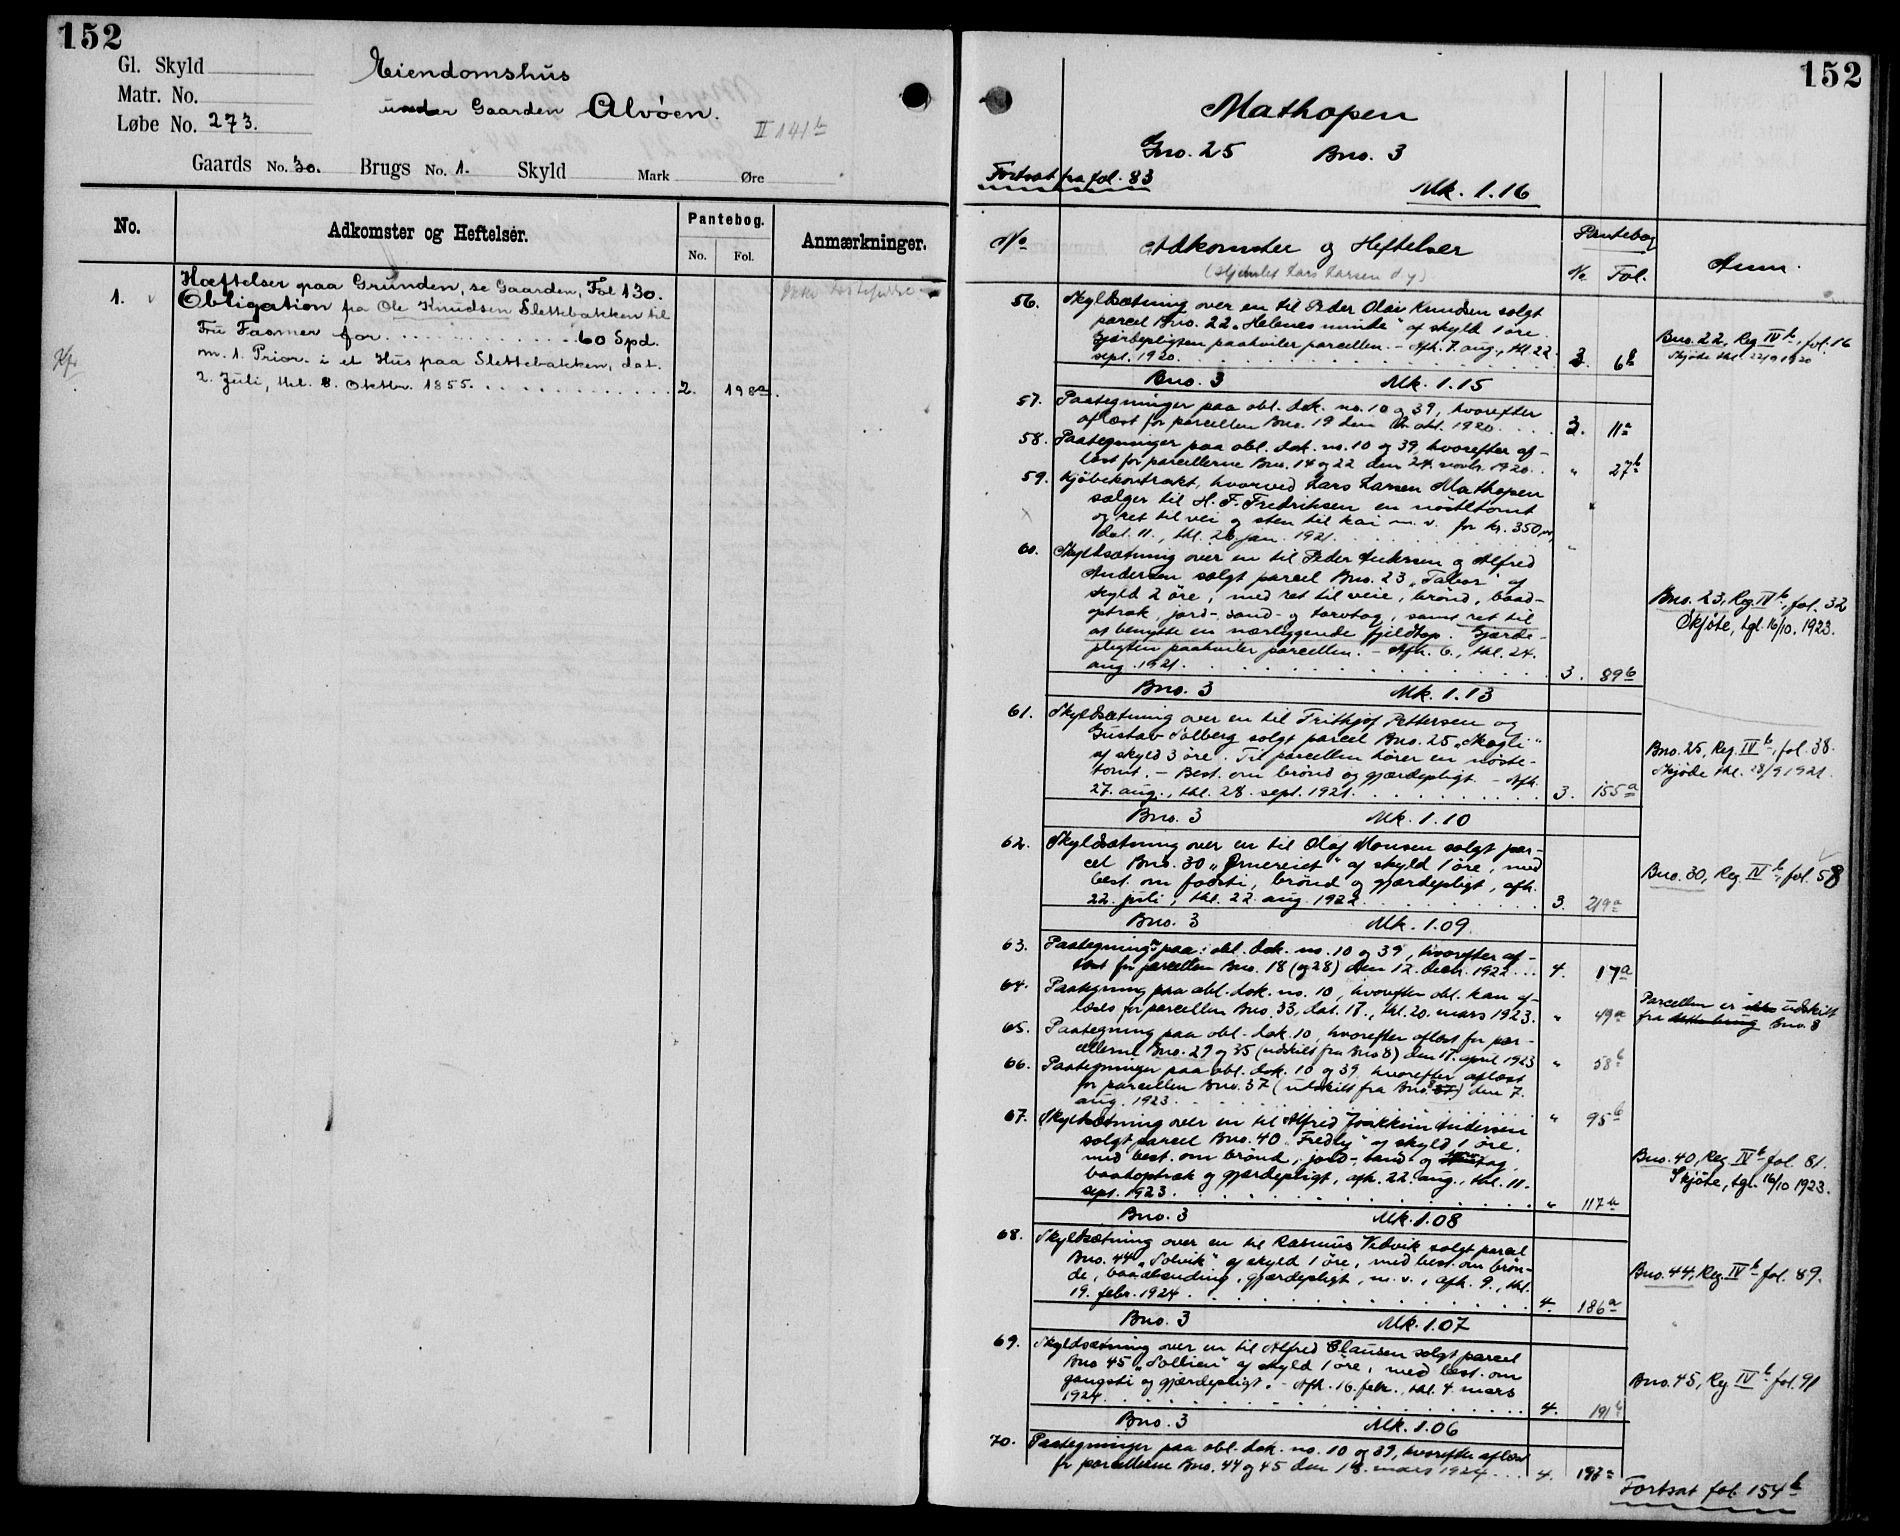 152
Gl. Skyld
Matr. No.
Løbe No. 273.
Eiendomshus
under Gaarden Alvøen.
II 141 b
Gaards No. 30. Brugs No. 1. Skyld Mark Øre
No. Adkomster og Heftelser. Pantebog. Anmærkninger.
No. Fol.
Hæftelser paa Grunden, se Gaarden, Fol 130.
1. Obligation fra Ole Knudsen Slettebakken til
Fru Fasmer for . . . . . . 60 Spd.
m. 1. Prior. i et Hus paa Slettebakken, dat.
2. Juli, thl. 8. Oktbr. 1855. . . . . 2. 198a.
152
Mathopen
Gno. 25 Bno. 3
Fortsat fra fol. 83
Mk. 1.16
No Adkomster og Heftelser Pantebog Anm.
(Hjemlet Lars Larsen d.y.)
No Fol.
56. Skyldsætning over en til Peder Olai Knudsen solgt
parcel Bno. 22 „Helenes minde" af skyld 1 øre.
Gjærdepligten paahviler parcellen. - Afh. 7. aug., thl. 22.
sept. 1920. . . . . 3. 6b
Bno. 22, Reg. IVb, fol. 16
Skjøte thl. 22/9 1920
Bno. 3 Mk. 1.15
57. Paategninger paa obl. dok. no. 10 og 39, hvorefter
aflæst for parcellen Bno. 19 den okt. 1920. . . . 3. 11a
58. Paategninger paa obl. dok. no. 10 og 39, hvorefter af-
læst for parcellerne Bno. 14 og 22 den 24. novbr. 1920. . " 27b
59. Kjøbekontrakt, hvorved Lars Larsen Mathopen
sælger til H. F. Fredriksen en nøstetomt
og ret til vei og sten til kai m. v. for kr. 350,00,
dat. 11., thl. 26 jan. 1921. . . . "
60. Skyldsætning over en til Peder Andersen og Alfred
Andersen solgt parcel Bno. 23 „Tabor" af
skyld 2 øre, med ret til veie, brønd, baad-
optræk, jord-, sand- og torvtag, samt ret til
at benytte en nærliggende fjeldtop. Gjærde-
pligten paahviler parcellen. - Afh. 6., thl. 24.
aug. 1921. . . . . 3. 89b
Bno. 23, Reg. IVb, fol. 32
Skjøte, tgl. 16/10. 1923.
Bno. 3 Mk. 1.13
61. Skyldsætning over en til Frithjof Pettersen og
Gustav Solberg solgt parcel Bno. 25 „Skogli"
af skyld 3 øre. Til parcellen hører en nøste-
tomt. - Best. om brønd og gjærdepligt. - Afh.
27. aug., thl. 28. sept. 1921. . . . 3. 155a
Bno. 25, Reg. IVb, fol. 38.
Skjøde thl. 28/9 1921.
Bno. 3 Mk. 1.10
62. Skyldsætning over en til Olaf Monsen solgt par-
cel Bno. 30 „Ørnereiet" af skyld 1 øre, med
best. om fodsti, brønd og gjærdepligt, afh.
22. juli, thl. 22. aug. 1922. . . . 3. 219a
Bno. 30, Reg. IVb, fol. 58
Bno. 3 Mk. 1.09
63. Paategninger paa obl. dok. no. 10 og 39, hvorefter af-
læst for parcellen Bno. 18 (og 28) den 12. decbr. 1922. . . 4. 17a
64. Paategning paa obl. dok. no. 10, hvorefter obl. kan af-
læses for parcellen Bno. 33, dat. 17., thl. 20. mars 1923. " 49a
Parcellen er udskilt
fra dette brug Bno. 8
65. Paategning paa obl. dok. 10, hvorefter aflæst for par-
cellerne Bno. 29 og 35 (udskilt fra Bno 8) den 17. april 1923 " 58b
66. Paategninger paa obl. dok. 10 og 39, hvorefter aflæst
for parcellen Bno. 37 (udskilt fra Bno. 8) den 7.
aug. 1923. . . . " 95b
67. Skyldsætning over en til Alfred Joakkim Andersen
solgt parcel Bno. 40 „Fredly" af skyld 1 øre,
med best. om brønd, jord-, sand- og torvtag,
baatoptræk og gjærdepligt, afh. 22. aug., thl. 11.
sept. 1923. . . . " 117a
Bno. 40, Reg IVb fol. 81.
Skjøte, tgl. 16/10 1923.
Bno. 3 Mk. 1.08
68. Skyldsætning over en til Rasmus Vedvik solgt parcel
Bno. 44 „Solvik" af skyld 1 øre, med best. om brøn-
de, baadlænding, gjærdepligt, m. v., afh. 9., thl.
19. febr. 1924. . . . 4. 186a
Bno. 44, Reg IVb fol. 89.
Bno. 3 Mk. 1.07
69. Skyldsætning over en til Alfred Clausen solgt parcel
Bno 45 „Sollien" af skyld 1 øre, med best. om
gangsti og gjærdepligt. - Afh. 16. febr., thl. 4. mars
1924. . . . 4. 191b
Bno. 45, Reg IVb fol. 91
Bno. 3 Mk. 1.06
70. Paategninger paa obl. dok. no. 10 og 39, hvorefter aflæst
for parcellerne Bno. 44 og 45 den 18. mars 1924. . . 4.
Fortsat fol 154b